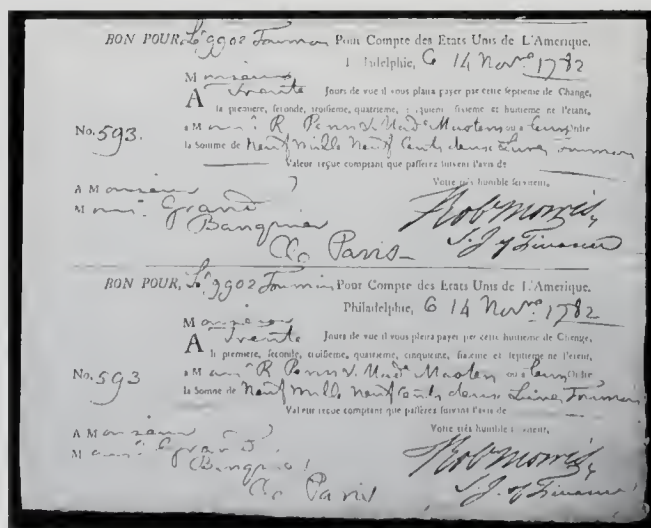 BON POUR, L.ᵗ 9902 Tournois Pour Compte des Etats Unis de L'Amerique.
Philadelphie, 14 Nov.ʳᵉ 1782
Monsieur
A Trente Jours de vue il vous plaira payer par cette septieme de Change,
la premiere, seconde, troisieme, quatrieme, cinquieme sixieme et huitieme ne l'etant,
No. 593. a M R ou a leur Ordre
la Somme de Neuf mille Neuf Cents deux Livres Tournois
Valeur reçue comptant que passerez suivant l'avis de
A Monsieur Votre très humble serviteur,
Monsr. Grand Robt Morris
Banquier S. J. of Finance
a Paris
BON POUR, L.ᵗ 9902 Tournois Pour Compte des Etats Unis de L'Amerique.
Philadelphie, 14 Nov.ʳᵉ 1782
Monsieur
A Trente Jours de vue il vous pleira payer par cette huitieme de Change,
la premiere, seconde, troisieme, quatrieme, cinquieme, sixieme et septieme ne l'etent,
No. 593 a M R ou a leur Ordre
la Somne de Neuf Mille Neuf Cents deux Livres Tournois
Valeur reçue comptant que passerez suivant l'avis de
A Monsieur Votre très humble serviteur,
Monsr. Grand Robt Morris
Banquier S. J. of Finance
a Paris